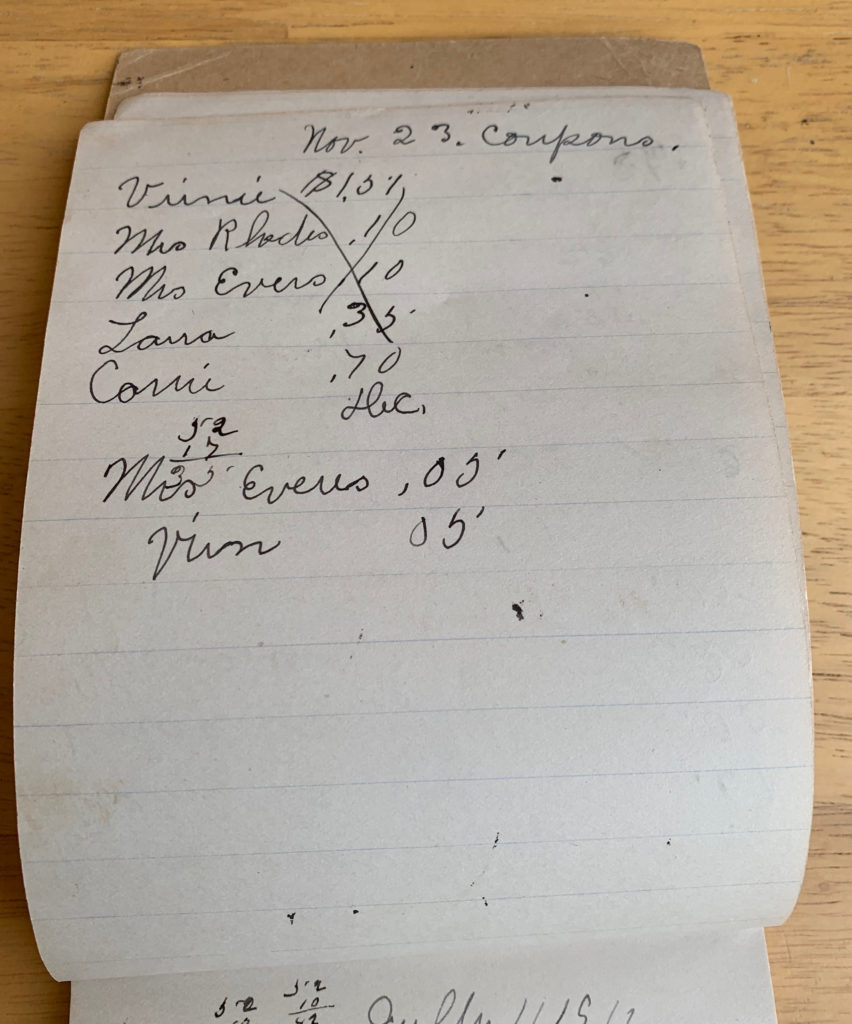 Nov. 23. Coupons.
Vinnie $1,51
Mrs Rhodes .10
Mrs Evers 10
Laura .35
Carrie .70
Dec.
52
17
35
Mrs Everes ,05
Vinn 05
52 52
10
42